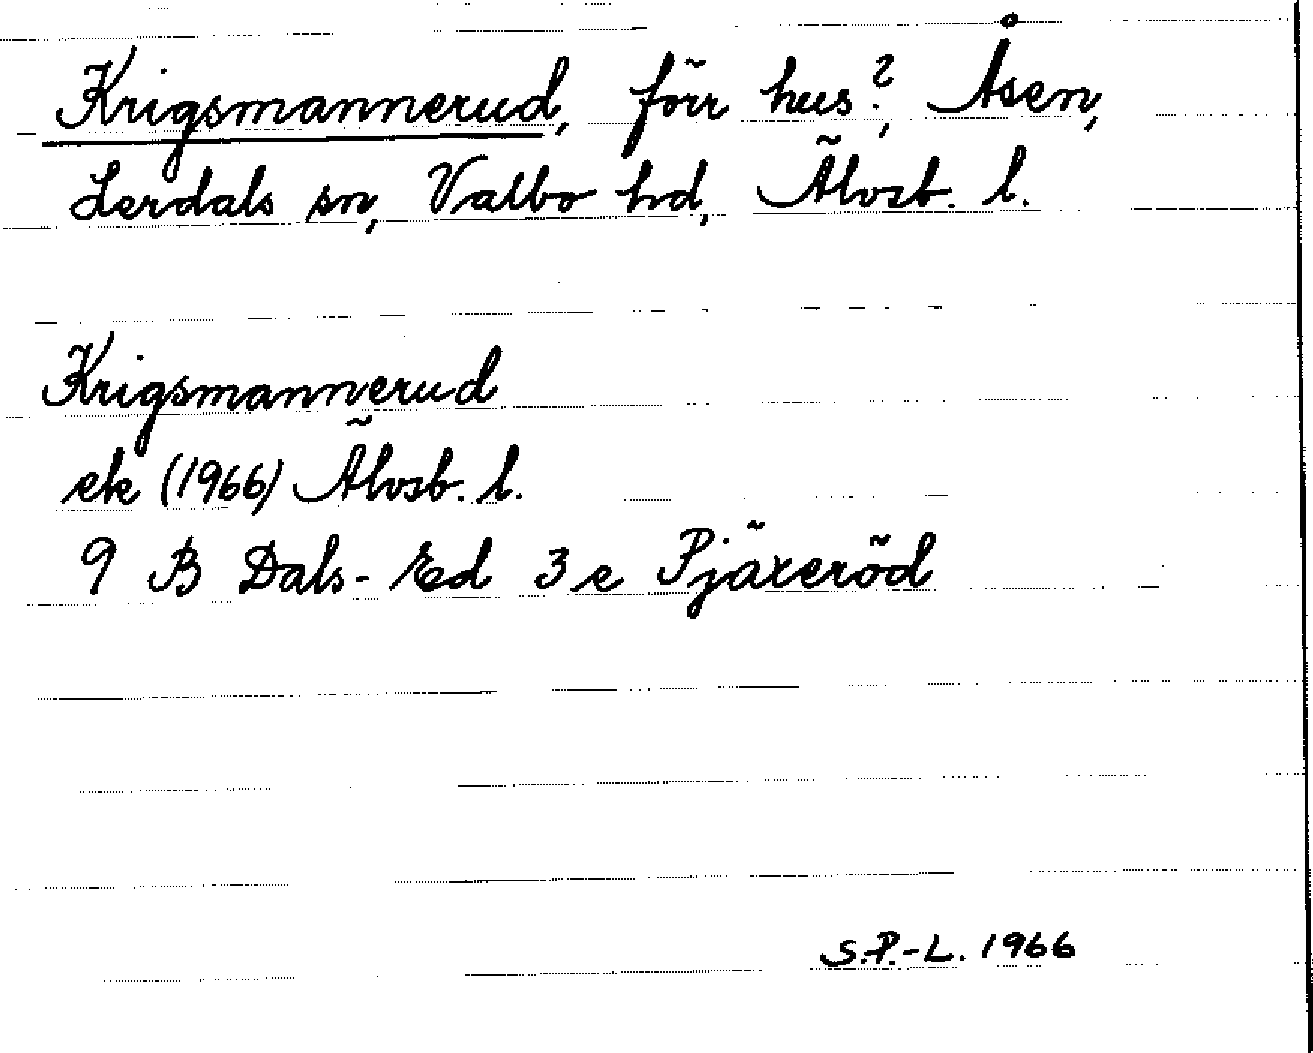 Krigsmannerud, förr hus?, Åsen,
Lerdals sn, Valbo hd, Älvsb. l.
Krigsmannerud
ek (1966) Älvsb. l.
9 B Dals-Ed 3 e Pjäxeröd
S.P.-L. 1966